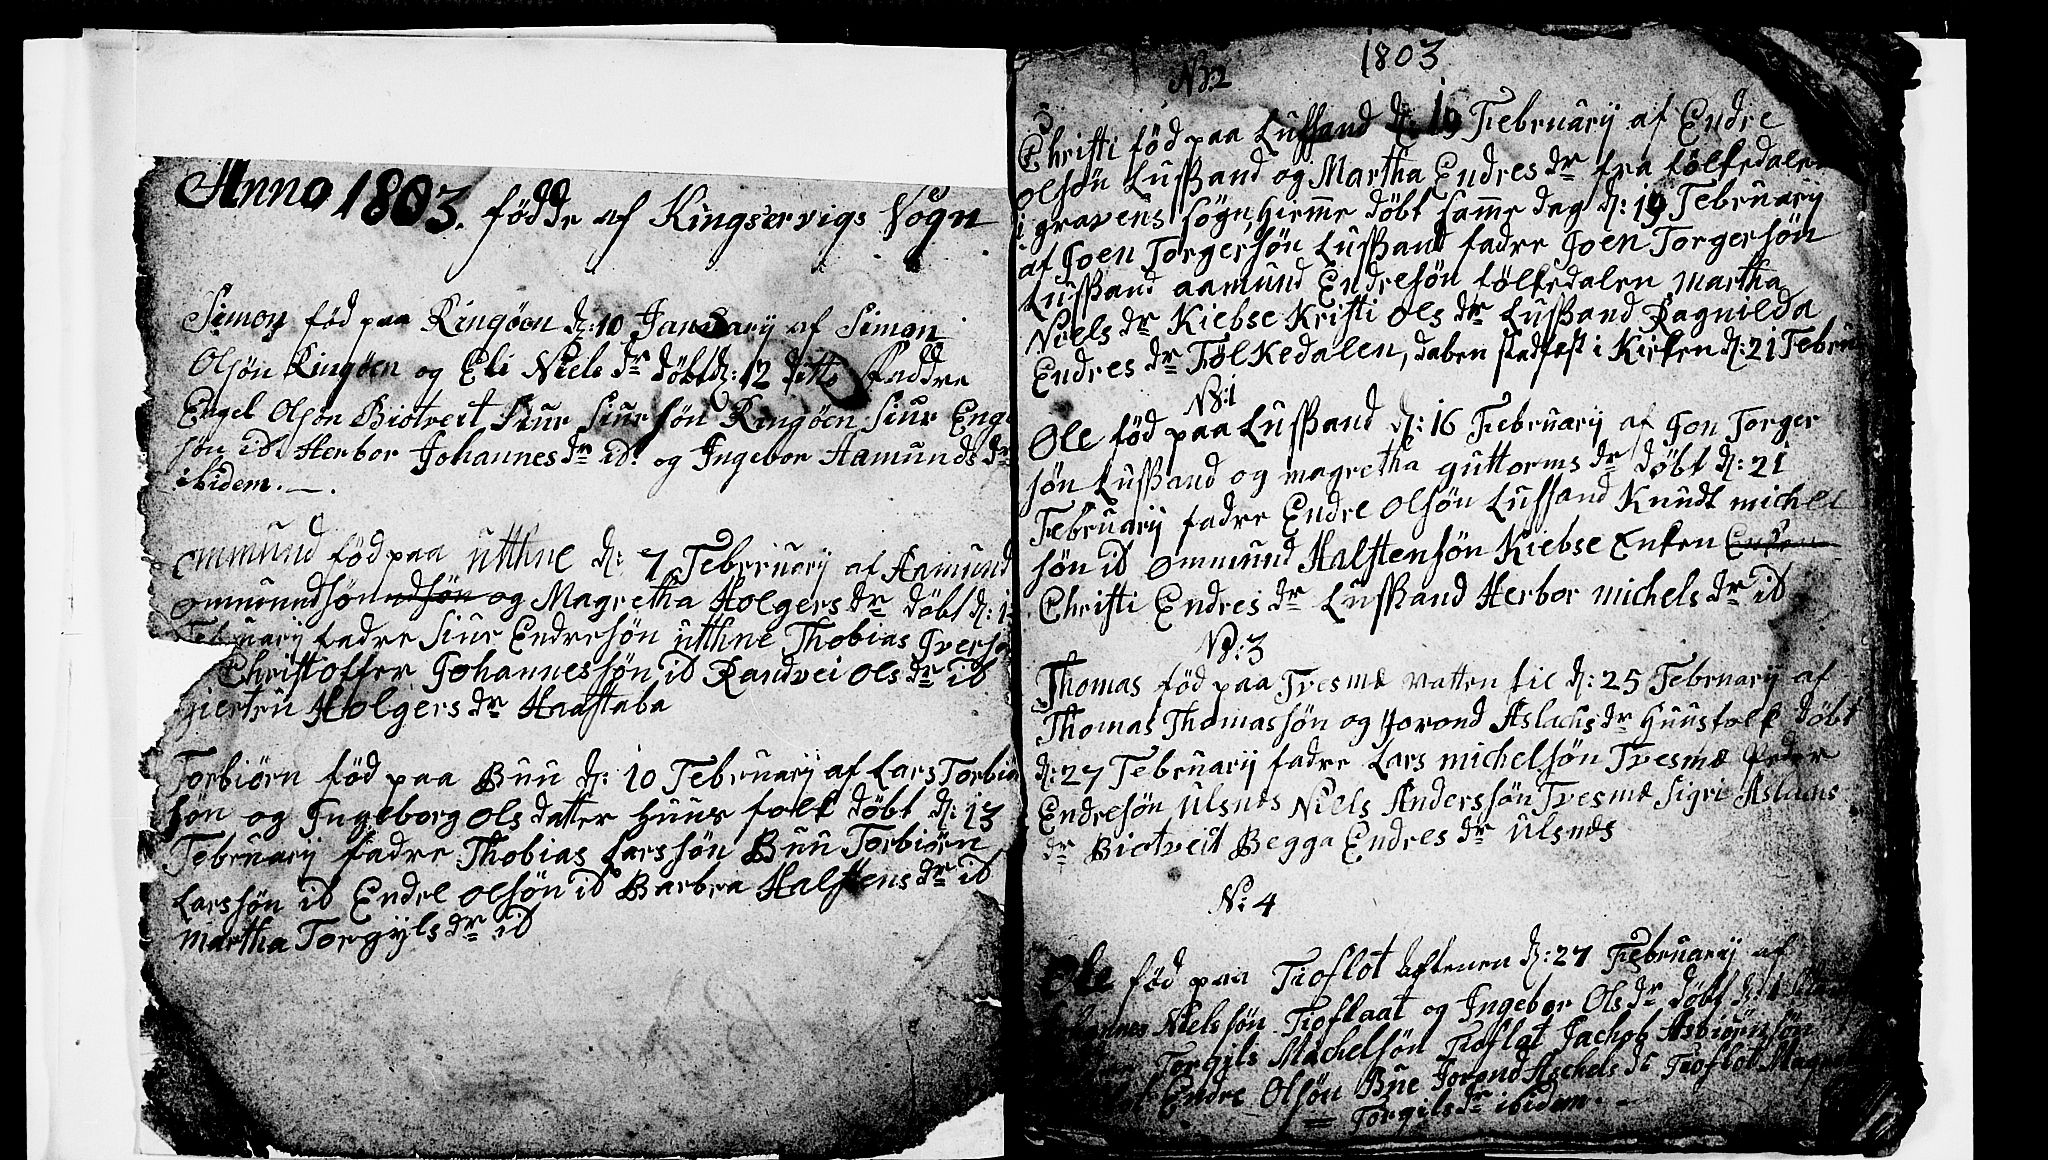 Anno 1803. födde af Kingservigs Sogn
Simon föd paa Ringöen d: 10 January af Simon
Olsön Ringöen og Eli Niels dr döbt d: 12 ditto Faddre
Engel Olson Biotveit Siur Siursön Ringöen Siur Eng
sön id. Herbor Johannes dr id. og Ingebor Aamunds dr
ibidem.
Ommund föd paa Utthne d: 7 February af Aamund
Ommundsön og Magretha Holgers dr döbt d: 1
February fadre Siur Endresön Utthne Thobias Iverso
Christoffer Johannessön id Randvei Ols dr id
giertru Holgers dr Haastaba
Torbiörn föd paa Buu d: 10 February af Lars Torbiö
son og Ingeborg Ols datter Huus folk döbt d: 13
February fadre Thobias Larssön Buu Torbiörn
Larssön id Endre Olsön id Barbra Halstens dr id
Martha Torgÿls dr id
1803
N: 2
Christi föd paa Lussand d: 19 February af Endre
Olsön Lussand og Martha Endres dr fra Tölkedalen
i gravens sogn, hiemme döbt samme dag d: 19 February
af Joen Torgersön Lussand fadre Joen Torgersön
Lussand Aamund Endresön Tölkedalen Martha
Niels dr Kiebse Kristi Ols dr Lussand Ragnilda
Endres dr Tölkedalen, daben stadfest i Kirken d: 21 Febru
N: 1
Ole föd paa Lussand d: 16 February af Jon Torger
sön Lussand og Magretha guttorms dr döbt d: 21
February fadre Endre Olsön Lussand Knudt Michel
sön id Ommund Halstensön Kiebse Enken
Christi Endres dr Lussand Herbor Michels dr id
N: 3
Thomas föd paa Tvesmæ Vatten lie d: 25 February af
Thomas Thomassön og Jorond Aslachs dr Huusfolk döbt
d: 27 February fadre Lars Michelsön Tvesmæ Peder
Endresön Ulsnes Niels Anderssön Tvesmæ Sigri Aslachs
dr Biotveit Begga Endres dr Ulsnæs
N: 4
Ole föd paa Tioflot Aftenen d: 27 February af
Nielssön Tioflaat og Ingebor Ols dr döbt d: 1
Torgils Machelsön Tioflot Jachob Asbiörnsön
Endre Olsön Bue Jorond Aschels dr Tioflot
Torgils dr ibidem.